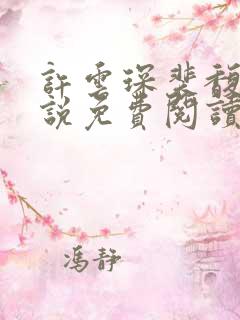 許雲琛裴馥
說免費閱讀
馮靜